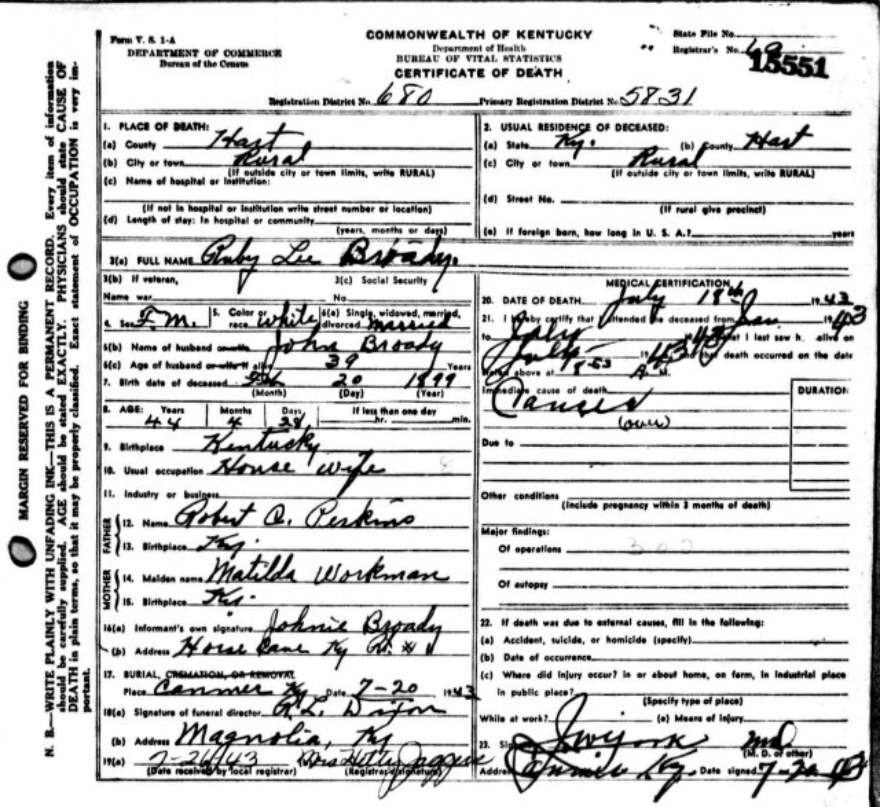 Form V. S. 1-A
DEPARTMENT OF COMMERCE
Bureau of the Census
COMMONWEALTH OF KENTUCKY
Department of Health
BUREAU OF VITAL STATISTICS
CERTIFICATE OF DEATH
State File No.
Registrar's No. 69
15551
Registration District No. 680 Primary Registration District No. 5831
1. PLACE OF DEATH:
(a) County Hart
(b) City or town Rural
(If outside city or town limits, write RURAL)
(c) Name of hospital or institution:
(If not in hospital or institution write street number or location)
(d) Length of stay: In hospital or community
(years, months or days)
2. USUAL RESIDENCE OF DECEASED:
(a) State Ky. (b) County Hart
(c) City or town Rural
(If outside city or town limits, write RURAL)
(d) Street No.
(If rural give precinct)
(e) If foreign born, how long in U. S. A.? years
3(a) FULL NAME Ruby Lee Broady.
3(b) If veteran,
Name war
3(c) Social Security
No.
4. Sex F.M. 5. Color or race White 6(a) Single, widowed, married, divorced Married
6(b) Name of husband or wife John Broady
6(c) Age of husband or wife if alive 39 Years
7. Birth date of deceased 20 1899
(Month) (Day) (Year)
8. AGE: Years Months Days If less than one day
44 4 28 hr. min.
9. Birthplace Kentucky
10. Usual occupation House wife
11. Industry or business
FATHER
12. Name Robert A. Perkins
13. Birthplace Ky.
MOTHER
14. Maiden name Matilda Workman
15. Birthplace Ky.
16(a) Informant's own signature Johnie Broady
(b) Address Horse Cave Ky
17. BURIAL, CREMATION, OR REMOVAL
Place Canmer Ky Date 7-20 1943
18(a) Signature of funeral director R. L. Dixon
(b) Address Magnolia, Ky
19(a) 7-26/43 Jaggers
(Date received by local registrar) (Registrar's signature)
MEDICAL CERTIFICATION
20. DATE OF DEATH July 18th 1943
21. I hereby certify that I attended the deceased from Jan. 1943
to July 1943 that I last saw h. alive on
July 1943 and that death occurred on the date
stated above at 8:53 A. M.
Immediate cause of death
Cancer
(over)
DURATION
Due to
Other conditions
(Include pregnancy within 3 months of death)
Major findings:
Of operations
Of autopsy
22. If death was due to external causes, fill in the following:
(a) Accident, suicide, or homicide (specify)
(b) Date of occurrence
(c) Where did injury occur? in or about home, on farm, in industrial place
in public place?
(Specify type of place)
While at work? (e) Means of injury
23. MD
(M. D. or other)
Address Ky. Date signed 7-20-43
MARGIN RESERVED FOR BINDING
N. B.—WRITE PLAINLY WITH UNFADING INK—THIS IS A PERMANENT RECORD. Every item of information
should be carefully supplied. AGE should be stated EXACTLY. PHYSICIANS should state CAUSE OF
DEATH in plain terms, so that it may be properly classified. Exact statement of OCCUPATION is very im-
portant.